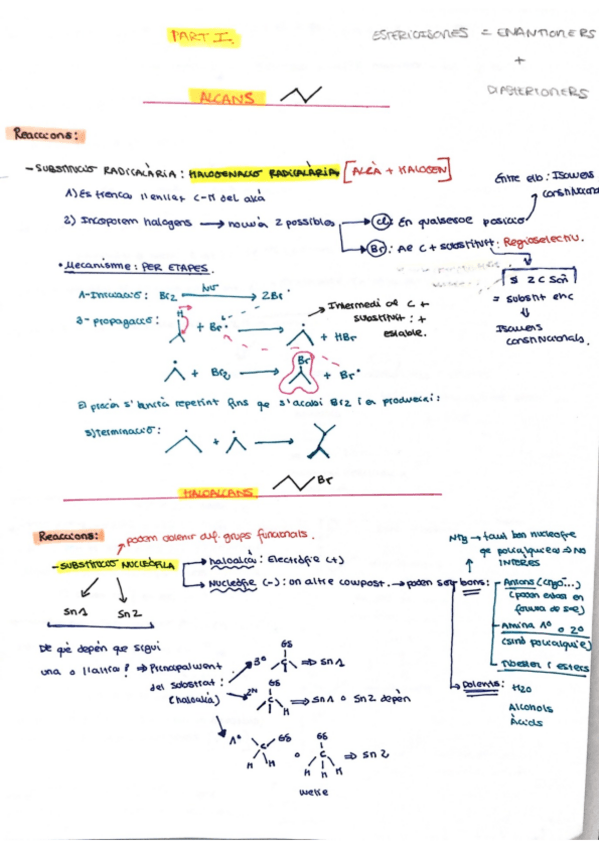 PART I.
ESTEREOISOMERS = ENANTIOMERS
+
DIASTERIOMERS
ALCANS
Reaccions:
- SUBSTITUCIÓ RADICALÀRIA: HALOGENACIÓ RADICALÀRIA [ALCÀ + HALOGEN]
1) Es trenca l'enllaç C-H del alcà
2) Incorporem halogens → 2 possibles
Cl: En qualsevol posició
Br: Al C + substituït: Regioselectiu.
Entre ells: Isomers
constitucionals
Si 2 C són
= substit enc
Isomers
constitucionals.
• Mecanisme: PER ETAPES.
1-Iniciació: Br2 → 2Br·
hν
2-propagació:
H
+ Br· → + HBr
Intermedi al C +
substituït: +
estable.
+ Br2 → Br + Br·
El procés s'anirà repetint fins que s'acabi Br2 i es produeixi:
3) terminació:
+ →
HALOALCANS
Br
Reaccions:
podem obtenir dif. grups funcionals.
- SUBSTITUCIÓ NUCLEÒFILA
haloalcà: Electròfil (+)
Nucleòfil (-): un altre compost. → poden ser
Sn1 Sn2
NH3 → tant bon nucleòfil
que polialquilació ⇒ NO
INTERES
bons:
Anions
(poden estar en
forma de sal)
Amina 1º o 2º
(sinó polialquil)
Tiòester i esters
Dolents: H2O
Alcohols
Àcids
De què depèn que segui
una o l'altra? ⇒ Principalment
del substrat:
(haloalcà)
3º GS C ⇒ Sn1
2º GS C H ⇒ Sn1 o Sn2 depèn
1º GS C H H o GS C H H H ⇒ Sn2